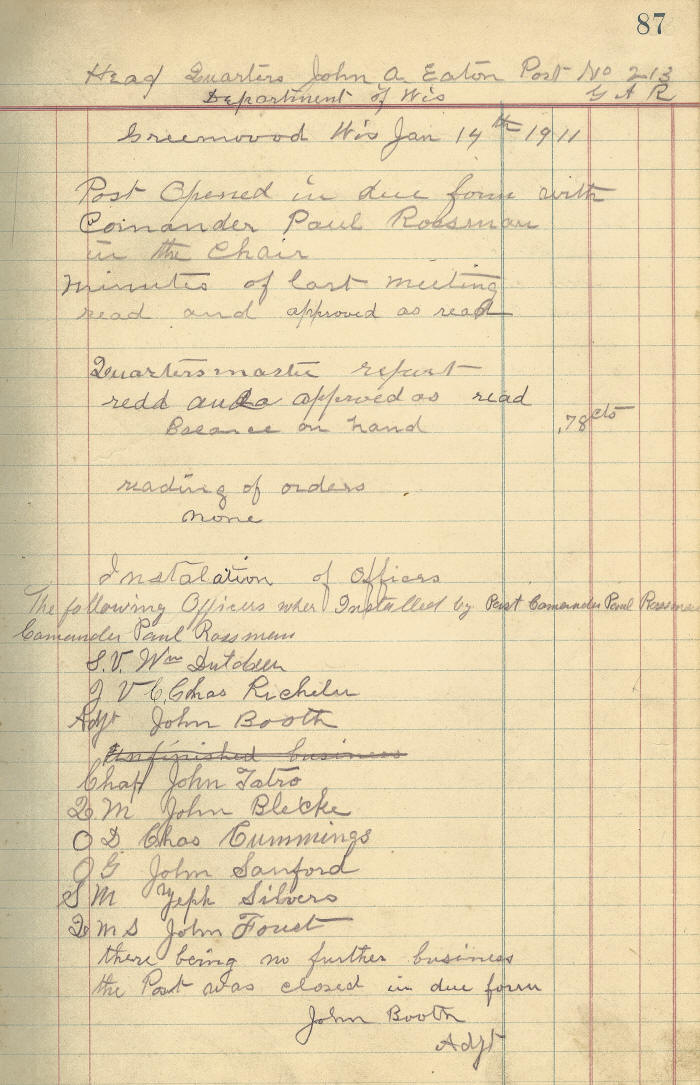 87
Head Quarters John A. Eaton Post No 213
Department of Wis G A R
Greenwood Wis Jan 14th 1911
Post Opened in due form with
Comander Paul Rossman
in the Chair
minutes of last meeting
read and approved as read
Quartersmaster report
redd and approved as read
Balance on hand .78 cts
reading of orders .
none
Instalation of Officers
The following Officers wher Installed by Past Comander Paul Rossman
Comander Paul Rossman
S.V. Wm
J V C. Chas
Adjt John Booth
Unfinished business
Chap John Tatro
Q M John Blecke
O D Chas Cummings
O G John Sanford
S M Zeph Silvers
Q M S John Foust
there being no further business
the Post was closed in due form
John Booth
Adjt